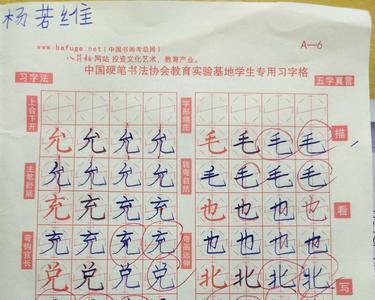 杨若维
www.bafuge.net(中国书画考级网)
A—6
八符格网站 投资文化艺术、教育产业。
中国硬笔书法协会教育实验基地学生专用习字格
习字法
五字真言
上合下开
字形端庄
允允允允 毛毛毛毛
描
主笔舒展
转弯自然
允允允允 毛毛毛毛
充充充充 也也也也
看
弯钩宜长
弯画远伸
充充充充 也也也也
兑兑兑兑 北北北北
写